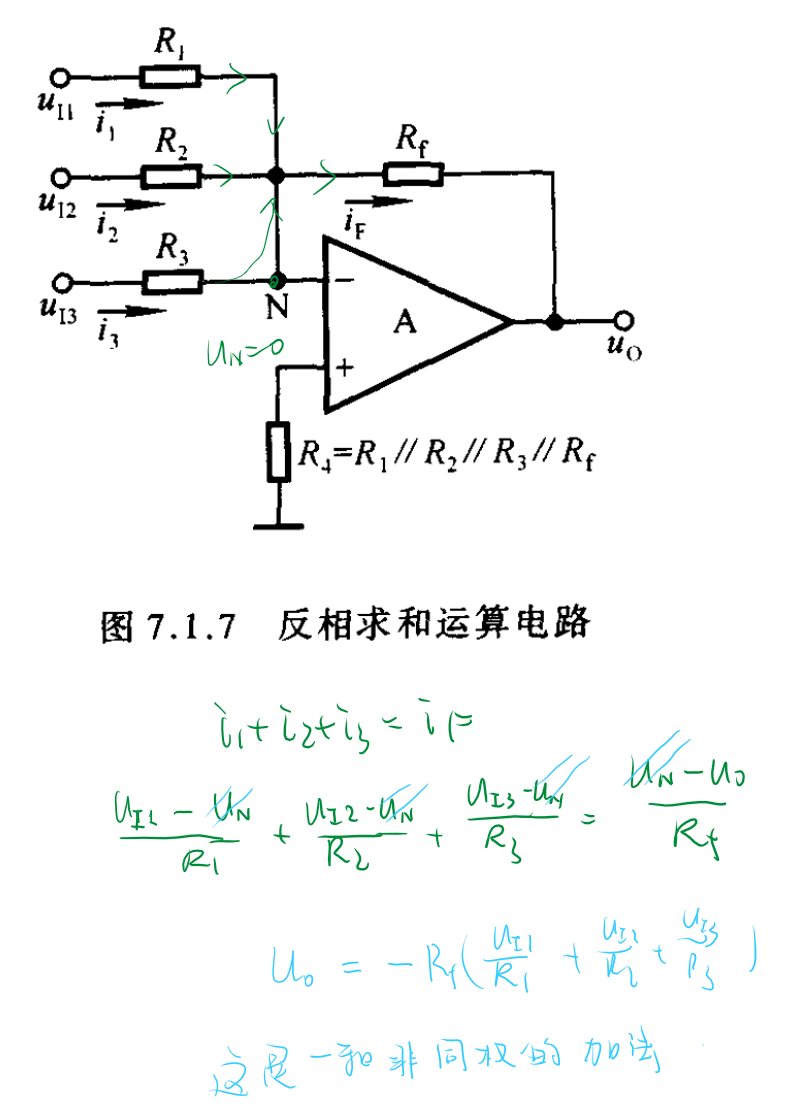 R₁
u_I1 i₁
R₂ R_f
u_I2 i₂ i_F
R₃
u_I3 i₃ N − A
u_N=0 + u_O
R₄=R₁//R₂//R₃//R_f
图 7.1.7 反相求和运算电路
i₁+i₂+i₃=i_F
(u_I1-u_N)/R₁ + (u_I2-u_N)/R₂ + (u_I3-u_N)/R₃ = (u_N-u_o)/R_f
u_o = -R_f(u_I1/R₁ + u_I2/R₂ + u_I3/R₃)
这是一种非同权的加法